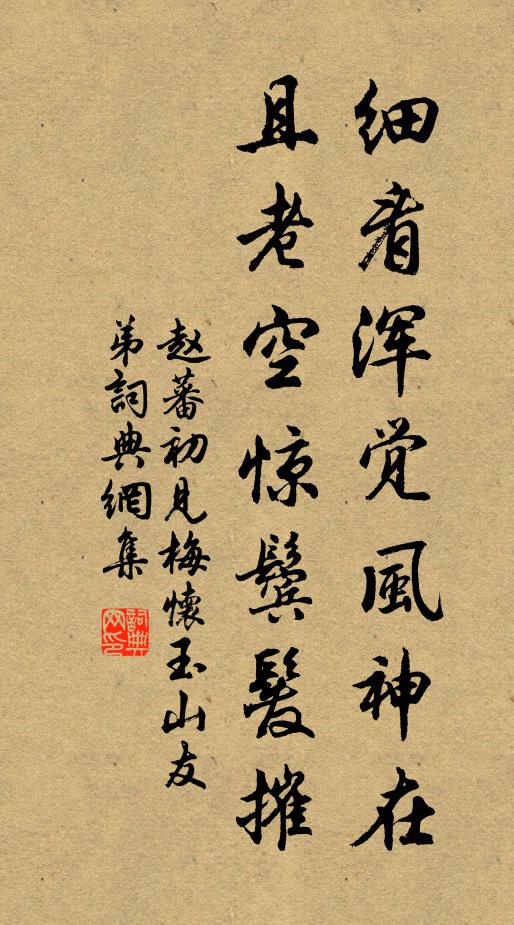 细看浑觉風神在
且老空惊鬓髮摧
赵蕃初見梅懷玉山友
弟詞典網集
詞典网印